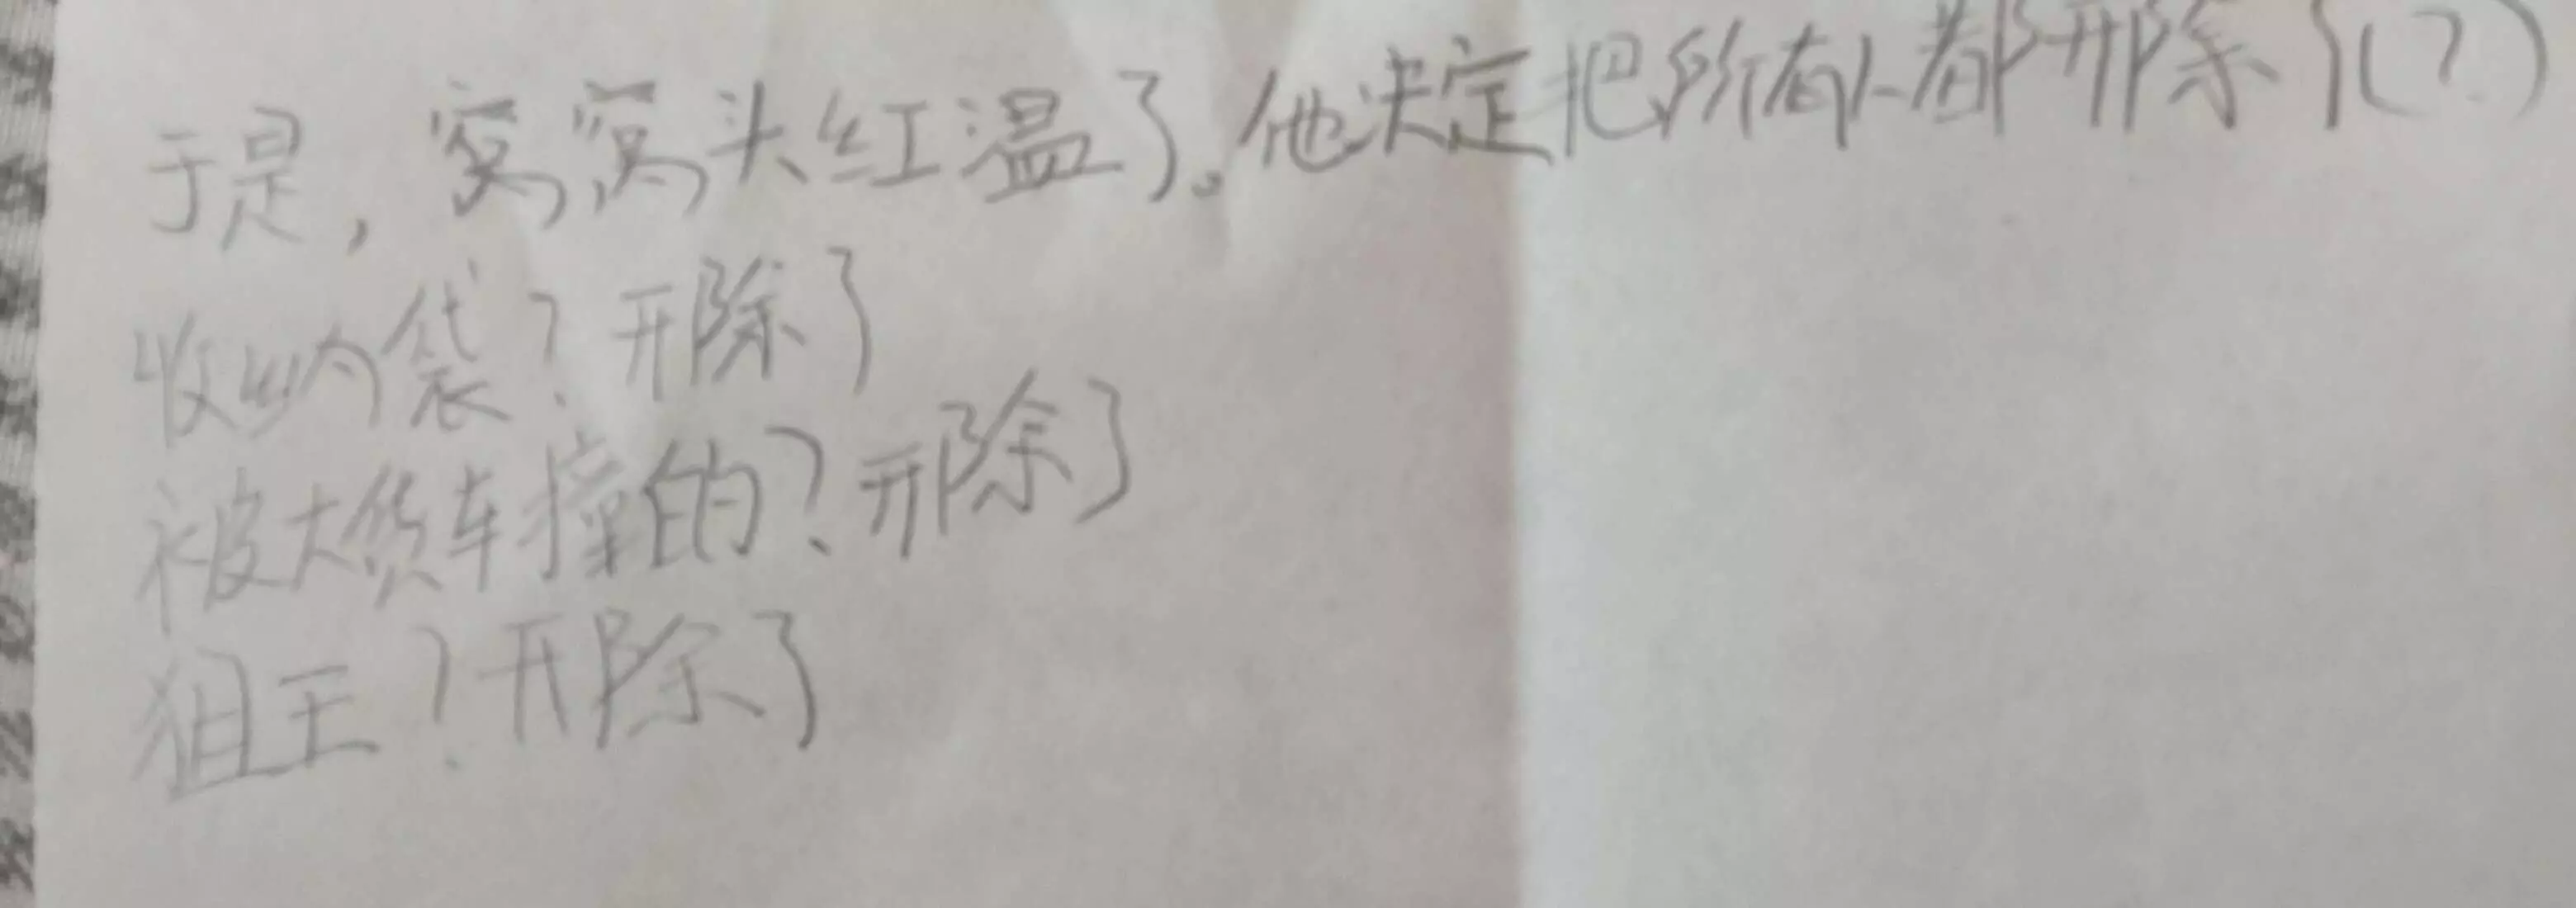 于是，窝窝头红温了。他决定把所有人都开除了(?)
收纳袋？开除了
被大货车撞的？开除了
狙王？开除了